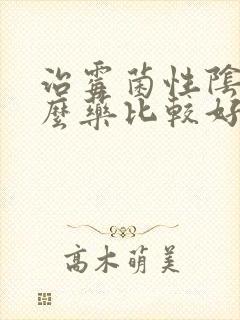 治霉菌性陰
麼藥比較好
高木萌美